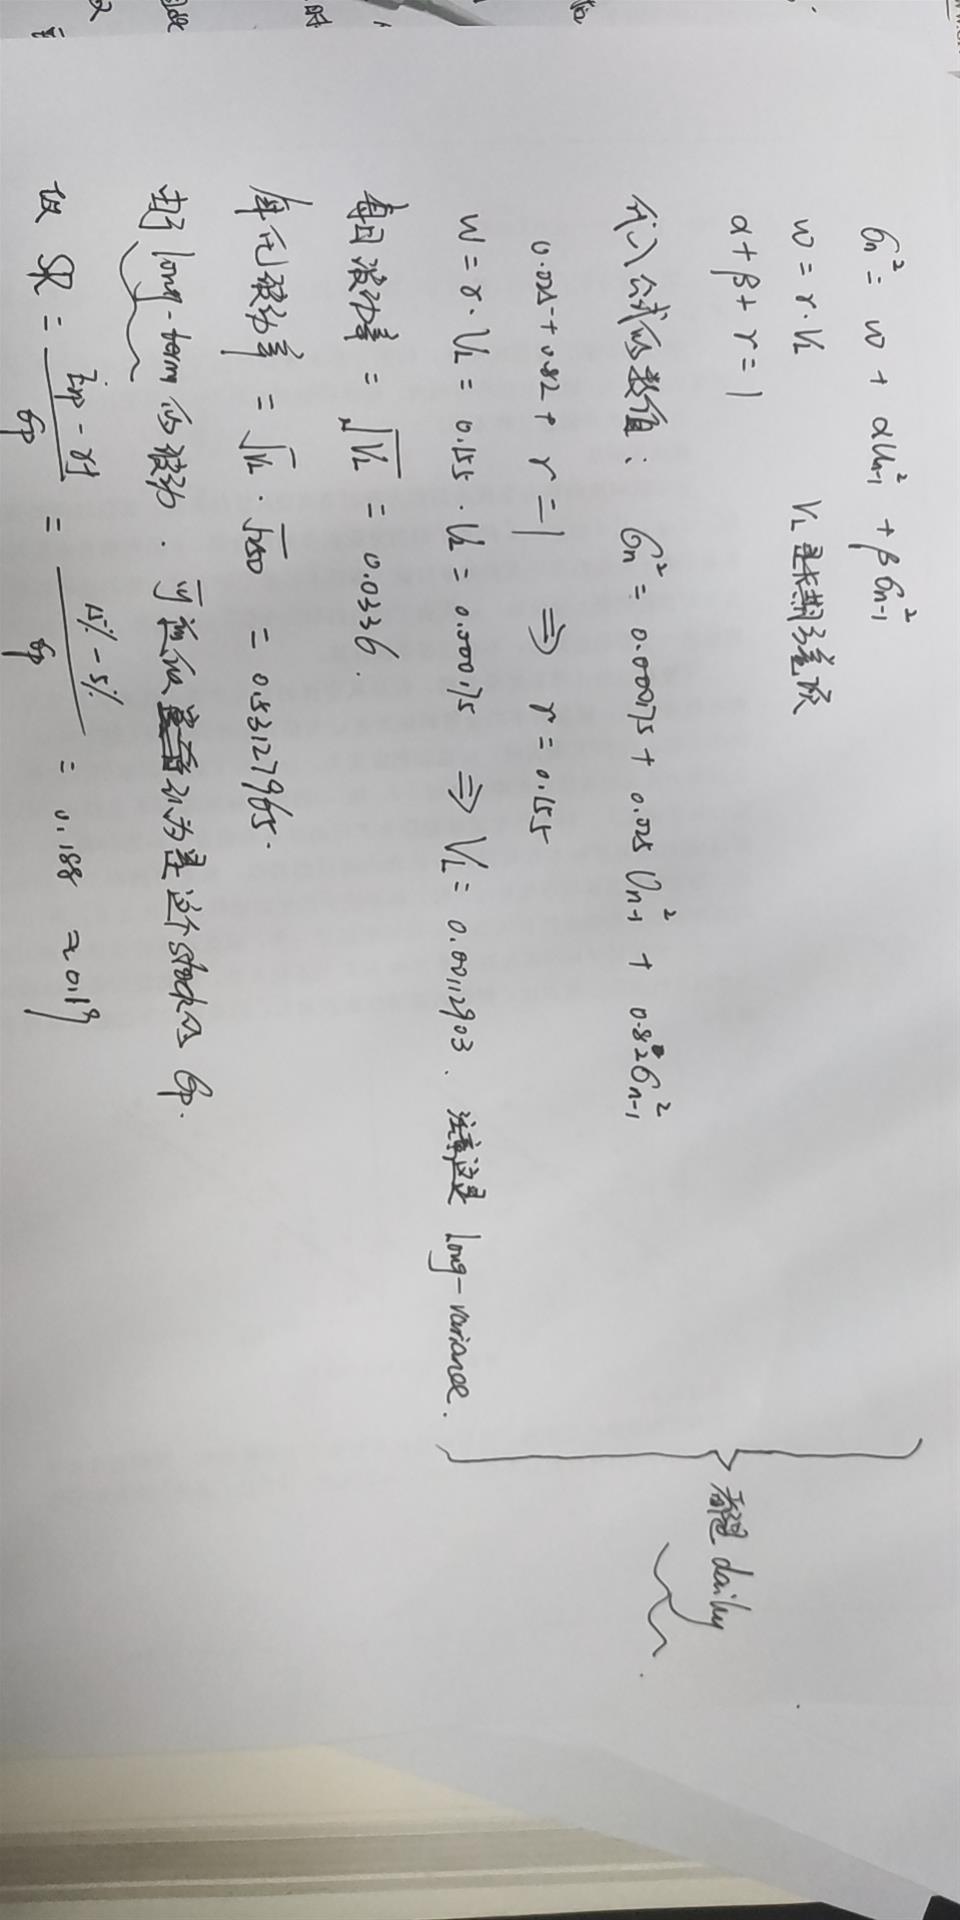 σn² = w + αUn-1² + βσn-1²
w = r·VL VL 是长期方差项
α + β + r = 1
代入公式的数值: σn² = 0.000175 + 0.025 Un-1² + 0.82σn-1²
0.025 + 0.82 + r = 1 ⇒ r = 0.155
w = r·VL = 0.155·VL = 0.000175 ⇒ VL = 0.00112903. 注意这是 long-variance.
都是 daily
每日波动率 = √VL = 0.0336.
年化波动率 = √VL · √250 = 0.53127965.
由于 long-term 的波动. 可近似为是这个stock的 σp.
SR = (E(rp) - rf)/σp = (15% - 5%)/σp = 0.188 ≈ 0.19